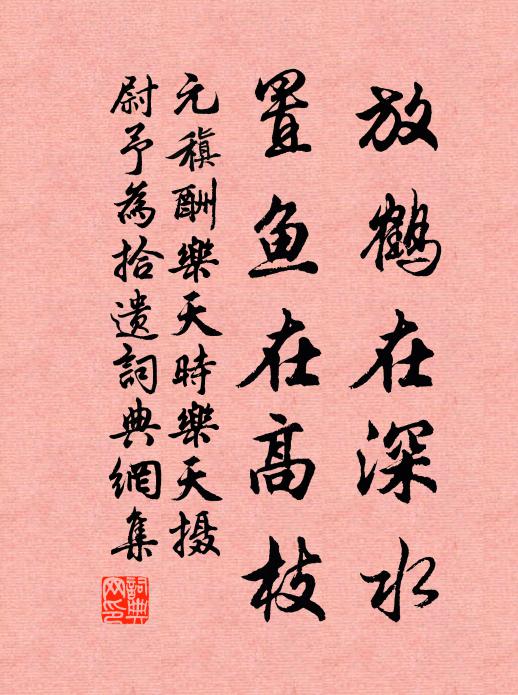 放鶴在深水
置鱼在高枝
元稹酬樂天時樂天摄
尉予為拾遗詞典網集
詞典网印